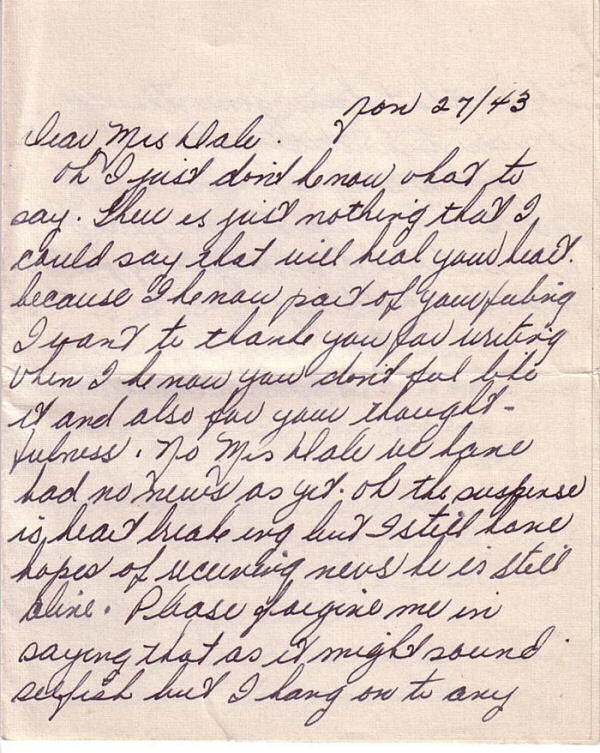 Jan 27/43
Dear Mrs Dale.
Oh I just don't know what to
say. There is just nothing that I
could say that will heal your heart.
because I know part of your feeling
I want to thank you for writing
when I know you don't feel like
it and also for your thought-
fulness. No Mrs Dale we have
had no news as yet. Oh the suspense
is heart breaking but I still have
hopes of receiving news he is still
alive. Please forgive me in
saying that as it might sound
selfish but I hang on to any